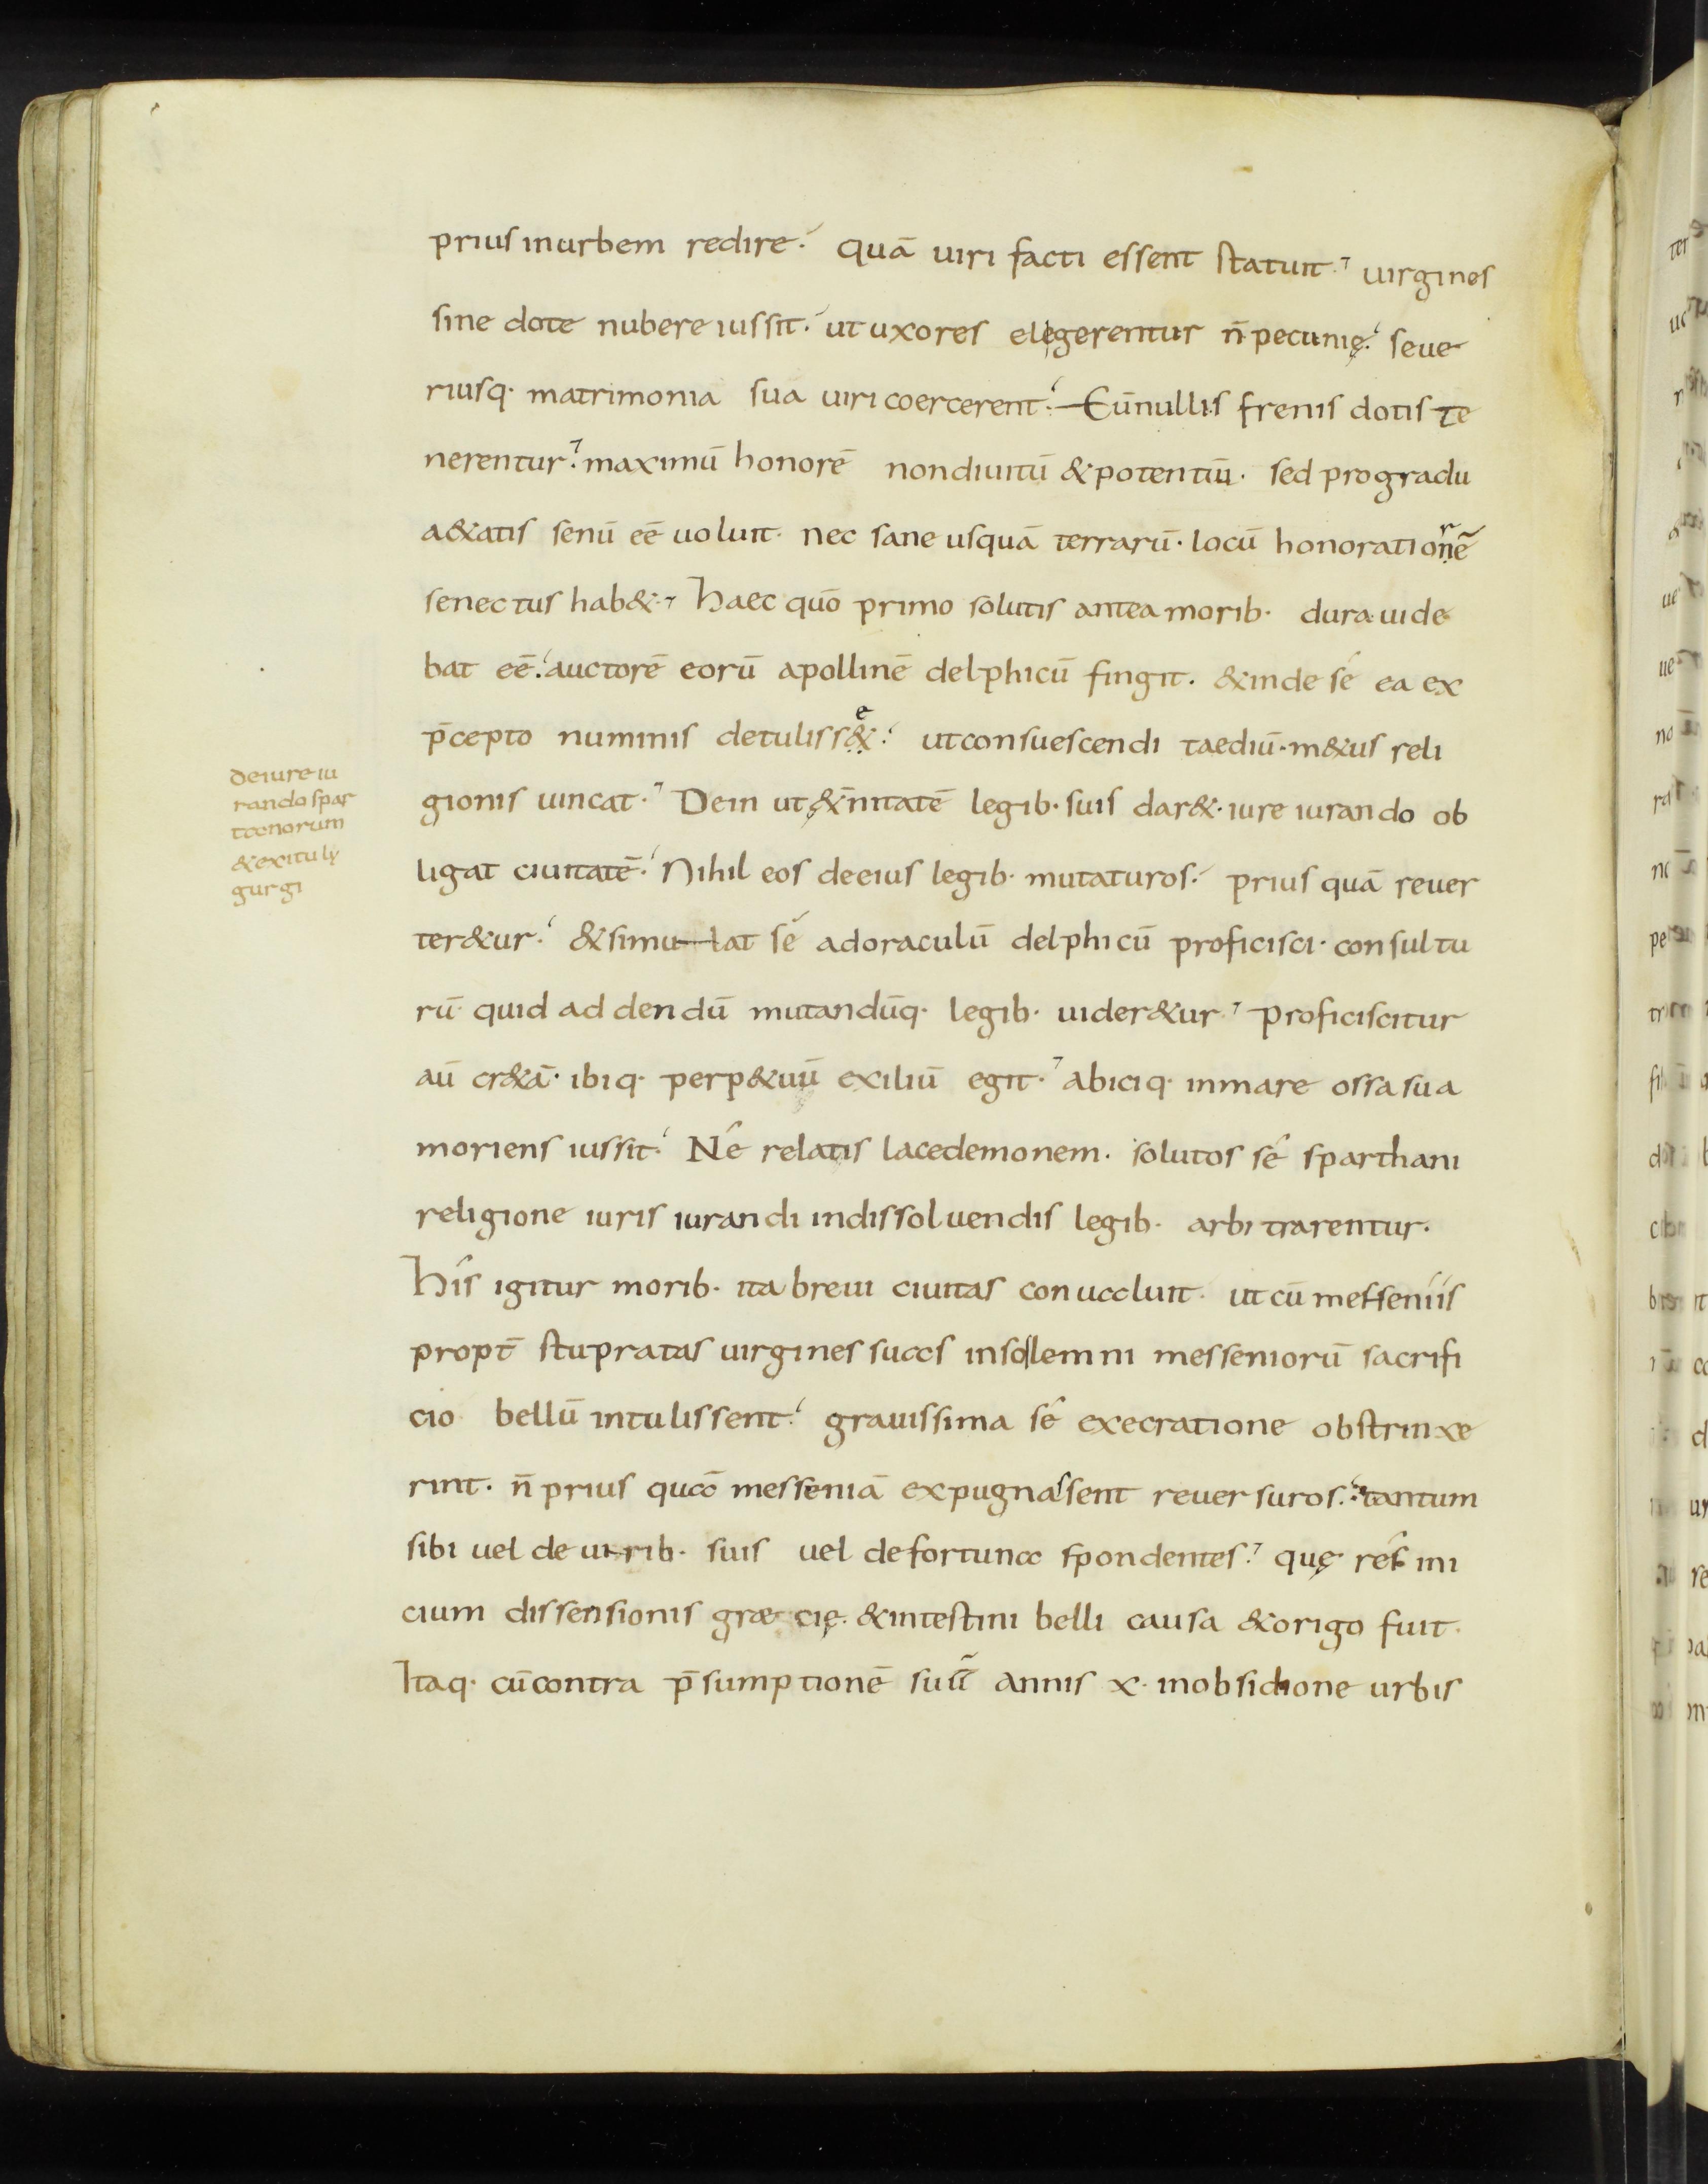 prius inurbem redire. quā uiri facti essent statuit. uirgines
sine dote nubere iussit. ut uxores elegerentur n̄ pecunię. seue
riusq· matrimonia sua uiri coercerent. Cū nullis frenis dotis te
nerentur. maximū honorē non diuitū & potentiū. sed pro gradu
a&atis senū eē uoluit. nec sane usquā terrarū. locū honorationē
r
senectus hab&. Haec quō primo solutis antea morib· dura uide
bat eē. auctorē eorū apollinē delphicū fingit. & inde sé ea ex
p̄cepto numinis detuliss&. ut consuescendi taediū. m&us reli
e
gionis uincat. Dein ut ę&n̄itatē legib· suis dar&. iure iurando ob
ligat ciuitatē. Nihil eos de eius legib· mutaturos. prius quā reuer
ter&ur. & simulat sé ad oraculū delphicū proficisci. consultu
rū quid addendū mutandūq· legib· uider&ur. proficiscitur
aū cr&ā. ibiq· perp&uū exiliū egit. abiciq· in mare ossa sua
moriens iussit. Né relatis lacedemonem. solutos sé sparthani
religione iuris iurandi in dissoluendis legib· arbitrarentur.
Hís igitur morib· ita breui ciuitas conualuit. ut cū messeniís
propt̄ stupratas uirgines suas in solemni messeniorū sacrifi
cio bellū intulissent. grauissima sé execratione obstrinxe
rint. n̄ prius quā messeniā expugnassent reuersuros. tantum
sibi uel de uirib· suis uel de fortuna spondentes. quę rés ini
cium dissensionis græcię. & intestini belli causa & origo fuit.
Itaq· cū contra p̄sumptionē suā annis x. in obsidione urbis
de iure iu
rando spar
tanorum
& exitu ly
gurgi